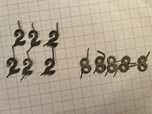 222
222 88888